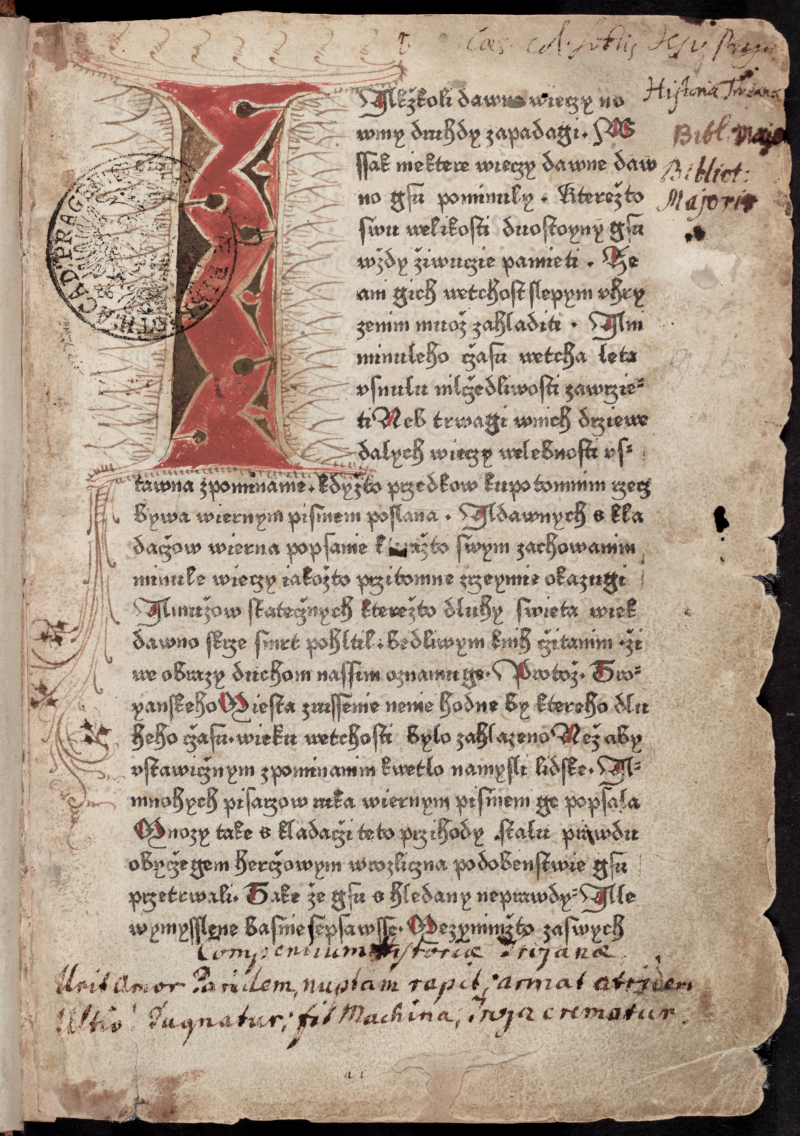 Cas. Col.
Historia Trojana
Bibl. Majo
Bibliot:
Majoris
ACAD. PRAG
IAkžkoli dawno wieczy no
winy duchdy zapadagi. W
ssak niektere wieczy dawne daw
no gsu pominuly. kterežto
swu welikosti duostoyny gsu
wždy žiwuczie pamieti. Ze
ani gich wetchost slepym vhry
zenim muož zahladiti. Ani
minuleho cžasu wetcha leta
vsnulu mlcžedliwosti zawrzie-
ti Neb trwagi wnich drziewe
dalych wieczy welebnosti vs-
tawna zpominanie. kdyžto przedkow kupotomnim rzecz
bywa wiernym pismem poslana. A dawnych s kla
dacžow wierna popsanie kterážto swym zachowanim
minule wieczy iakožto przitomne zrzeymie okazugi
A mužow statecžnych kterežto dluhy swieta wiek
dawno skrze smrt pohltil. bedliwym knih cžitanim. ži
we obrazy duchom nassim oznamuge. Protož. Tro-
yanskeho Miesta zrussenie nenie hodne by ktereho dlu
heho cžasu. wieku wetchosti bylo zahlazeno Než aby
vstawicžnym zpominanim kwetlo namysli lidske. A-
mnohych pisarzow ruka wiernym pismem ge popsala
Mnozy take s kladacži teto przihody stalu prawdu
obycžegem hercžowym wrozlicžna podobenstwie gsu
przetrwali. Take že gsu s hledany neprawdy. Ale
wymysslene basnie sepsawsse. Mezynimižto zaswych
Compendium Historiæ Trojanæ
Urit amor Paridem, nuptam rapit, armat atriden
Ultio! Pugnatur; fit Machina, Troja crematur.